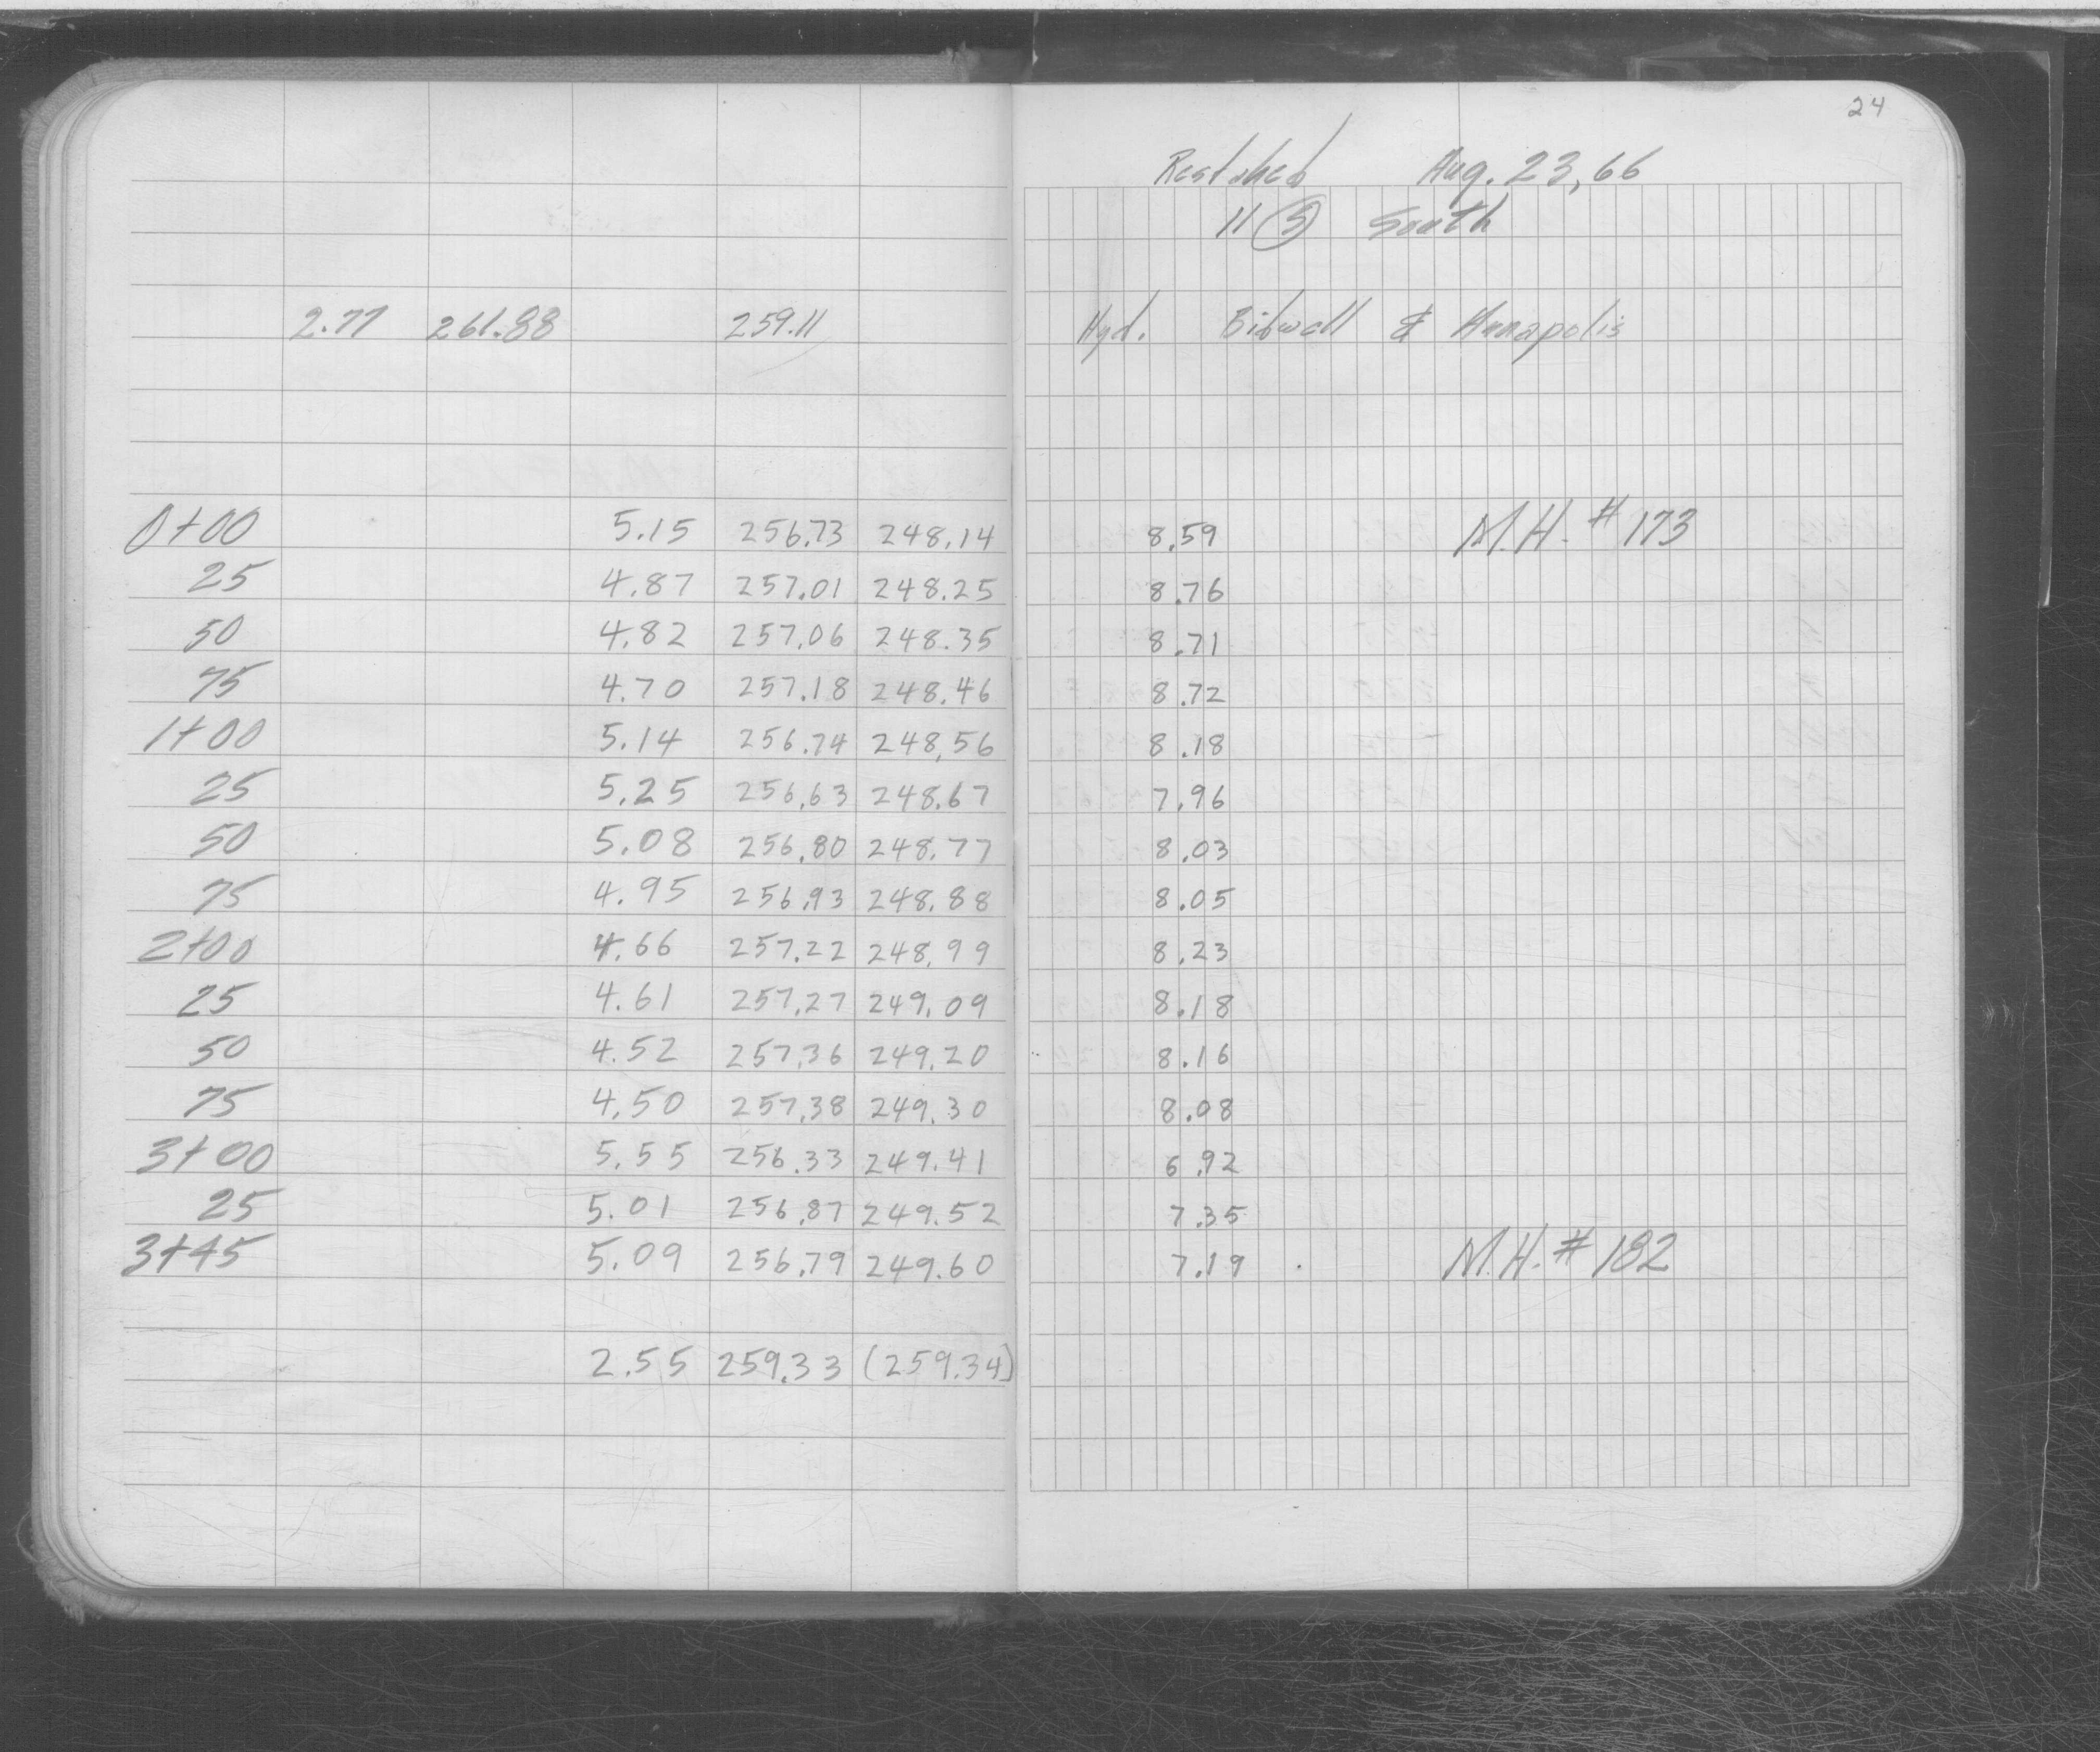 24
Restaked Aug. 23, 66
11 (5) South
2.77 261.88 259.11 Hyd. Bidwell & Annapolis
0+00 5.15 256.73 248.14 8.59 M.H. # 173
25 4.87 257.01 248.25 8.76
50 4.82 257.06 248.35 8.71
75 4.70 257.18 248.46 8.72
1+00 5.14 256.74 248.56 8.18
25 5.25 256.63 248.67 7.96
50 5.08 256.80 248.77 8.03
75 4.95 256.93 248.88 8.05
2+00 4.66 257.22 248.99 8.23
25 4.61 257.27 249.09 8.18
50 4.52 257.36 249.20 8.16
75 4.50 257.38 249.30 8.08
3+00 5.55 256.33 249.41 6.92
25 5.01 256.87 249.52 7.35
3+45 5.09 256.79 249.60 7.19 M.H. # 182
2.55 259.33 (259.34)